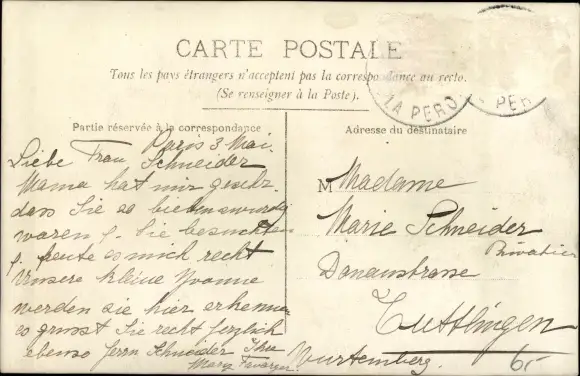 CARTE POSTALE
Tous les pays étrangers n'acceptent pas la correspondance au recto.
(Se renseigner à la Poste).
LA PERO
PER
Partie réservée à la correspondance
Adresse du destinataire
Paris 3 Mai.
Liebe Frau Schneider
Mama hat mir
dass Sie so liebenswürdig
waren &. Sie besuchten
&. freute es mich recht
Unsere kleine Yvonne
werden sie hier erkennen
es grüsst Sie recht herzlich
ebenso Herrn Schneider Ihre
Mary
M Madame
Marie Schneider
Privatier
Donaustrasse
Tuttlingen
Wurtemberg.